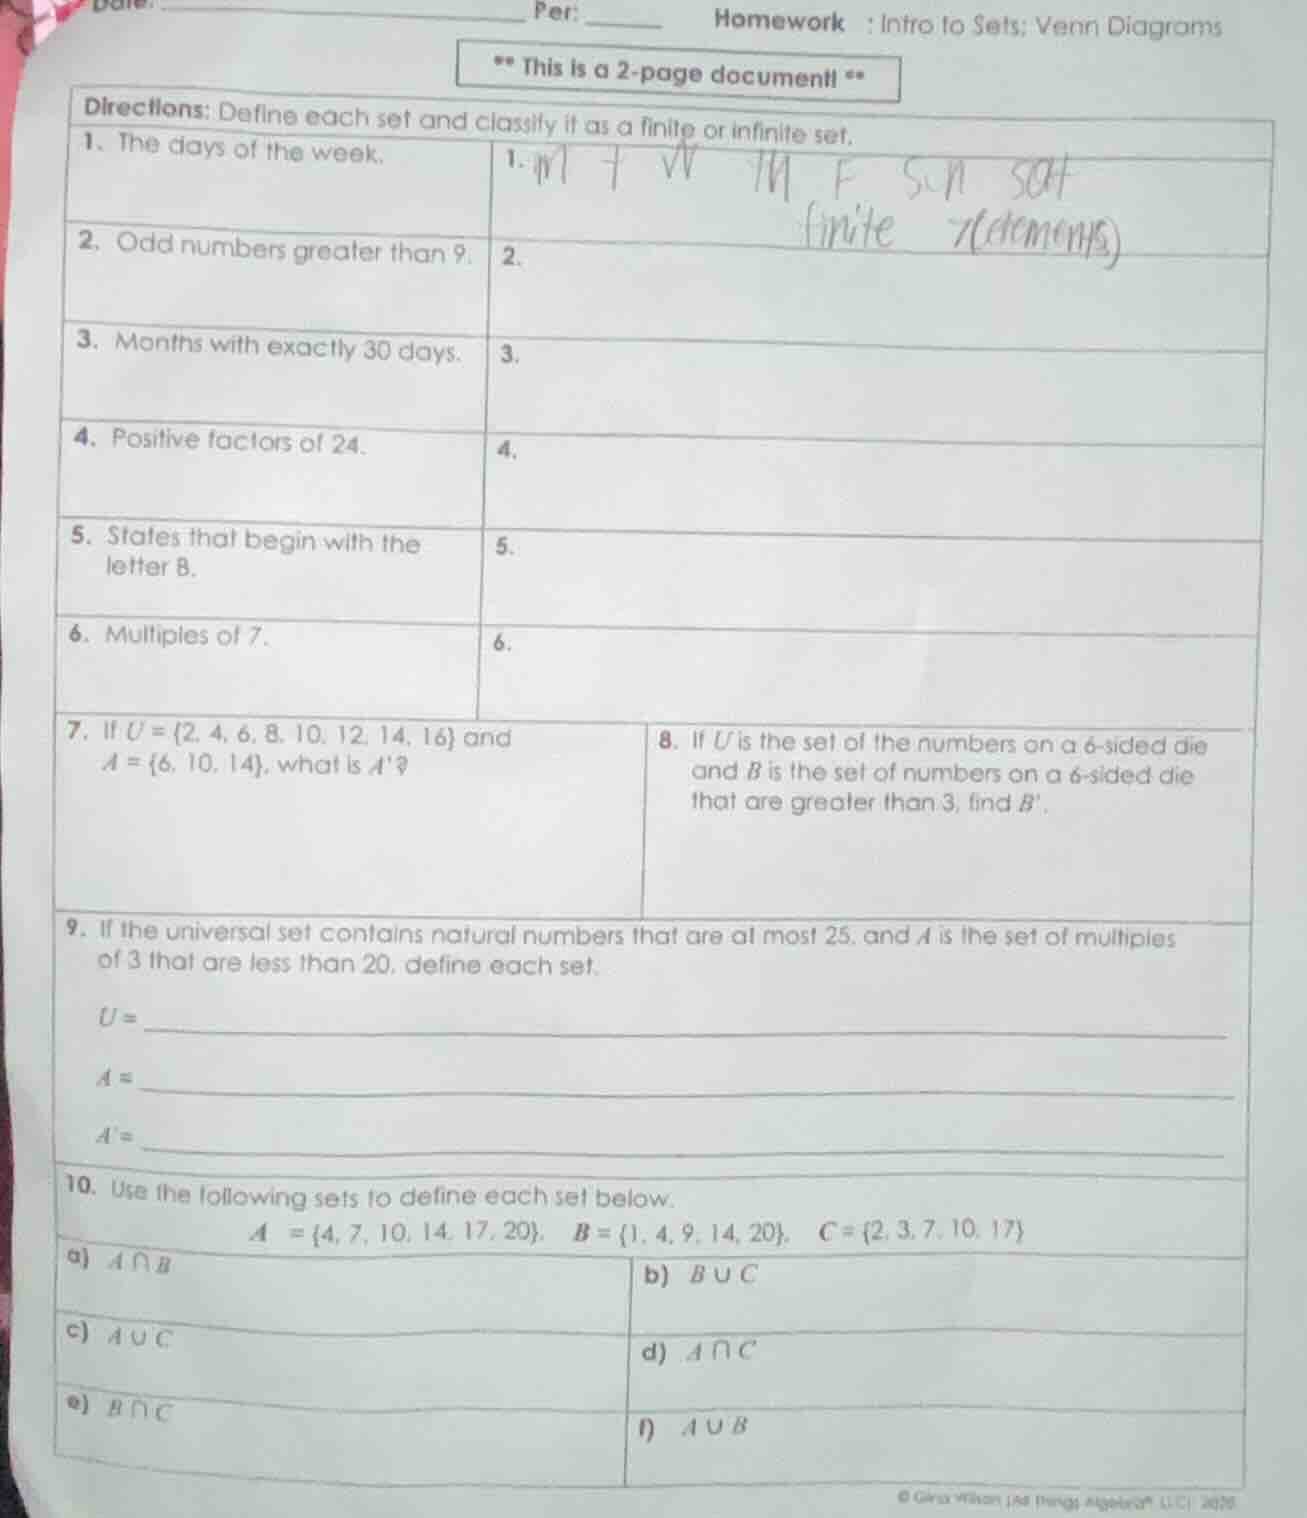 Date: Per: Homework : Intro to Sets; Venn Diagrams
** This is a 2-page document! **
Directions: Define each set and classify it as a finite or infinite set.
1. The days of the week.
1. M T W TH F Sun sat
finite 7(elements)
2. Odd numbers greater than 9.
2.
3. Months with exactly 30 days.
3.
4. Positive factors of 24.
4.
5. States that begin with the
letter B.
5.
6. Multiples of 7.
6.
7. If U = {2, 4, 6, 8, 10, 12, 14, 16} and
A = {6, 10, 14}, what is A'?
8. If U is the set of the numbers on a 6-sided die
and B is the set of numbers on a 6-sided die
that are greater than 3, find B'.
9. If the universal set contains natural numbers that are at most 25, and A is the set of multiples
of 3 that are less than 20, define each set.
U =
A =
A' =
10. Use the following sets to define each set below.
A = {4, 7, 10, 14, 17, 20}, B = {1, 4, 9, 14, 20}, C = {2, 3, 7, 10, 17}
a) A ∩ B
b) B ∪ C
c) A ∪ C
d) A ∩ C
e) B ∩ C
f) A ∪ B
© Gina Wilson (All Things Algebra®, LLC), 2020